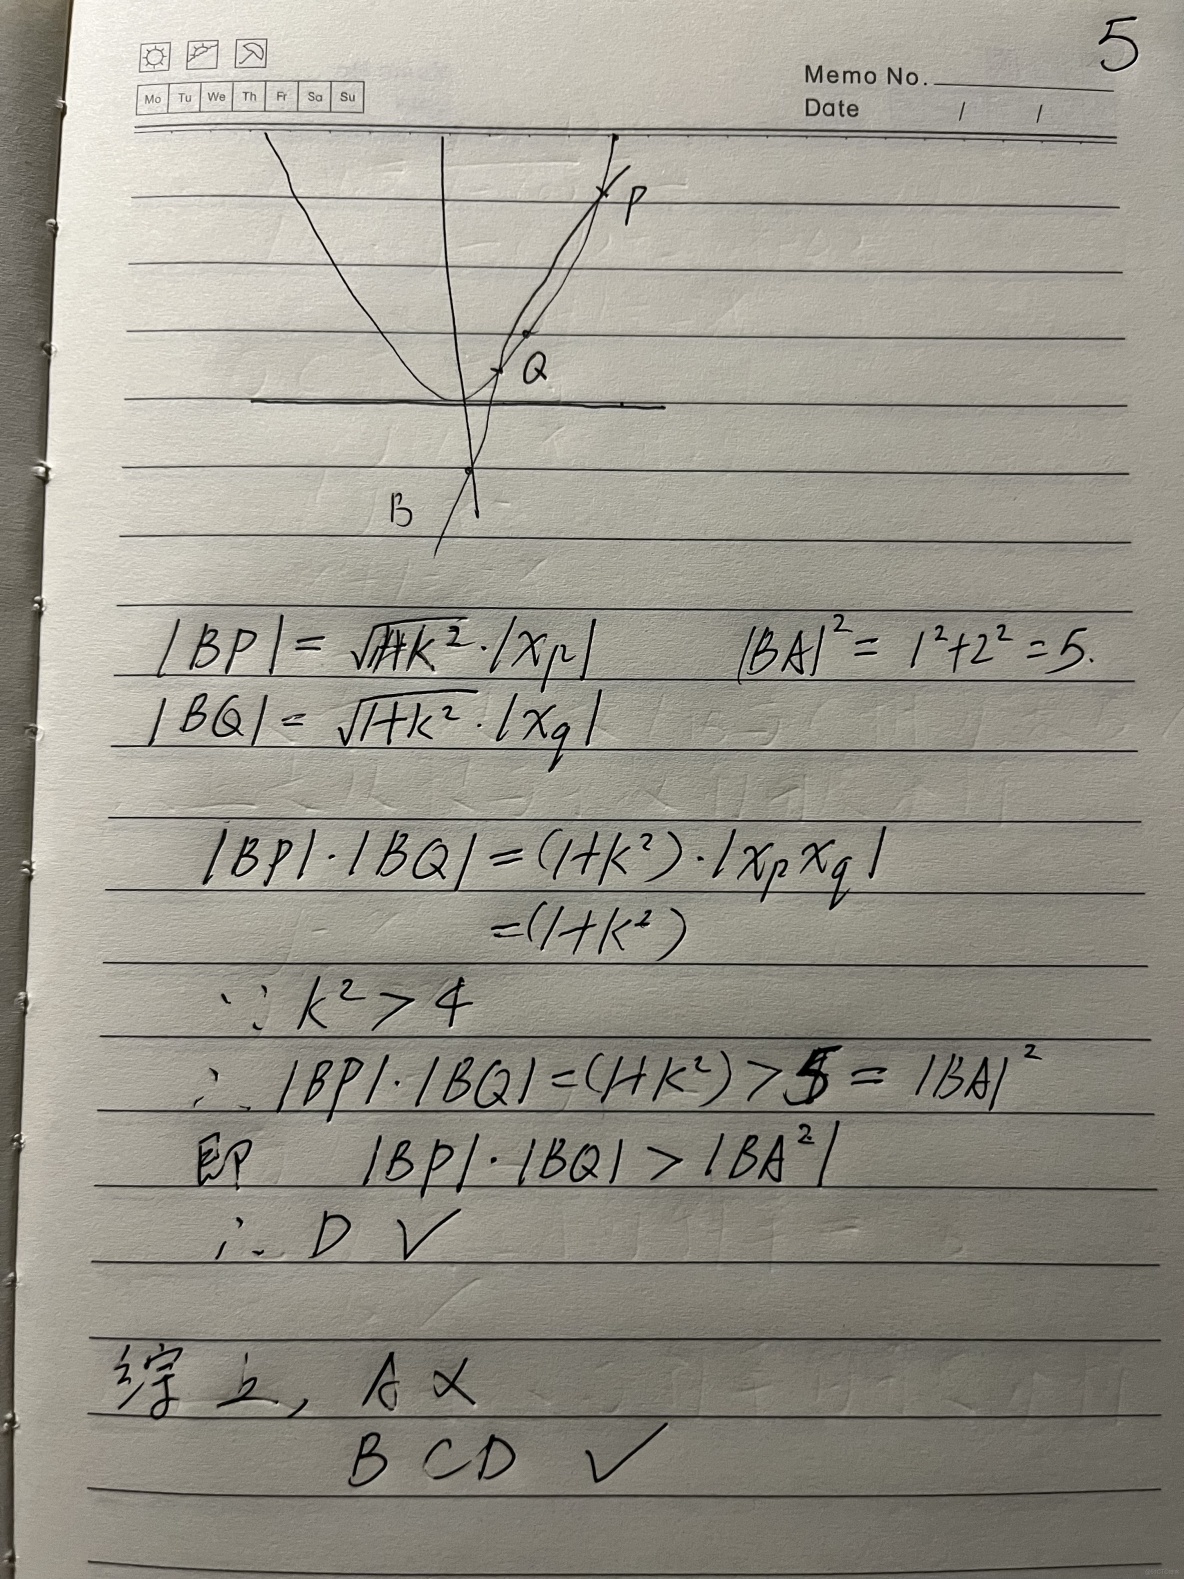 5
Memo No.
Mo Tu We Th Fr Sa Su
Date / /
P
Q
B
|BP| = √1+k² · |xp| |BA|² = 1²+2² = 5.
|BQ| = √1+k² · |xq|
|BP| · |BQ| = (1+k²) · |xp xq|
=(1+k²)
∵ k² > 4
∴ |BP| · |BQ| = (1+k²) > 5 = |BA|²
即 |BP| · |BQ| > |BA²|
∴ D ✓
综上, A ×
B C D ✓